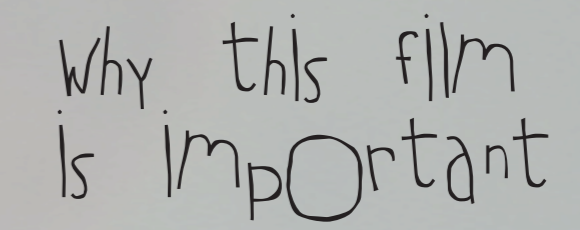 Why this film
is impOrtant